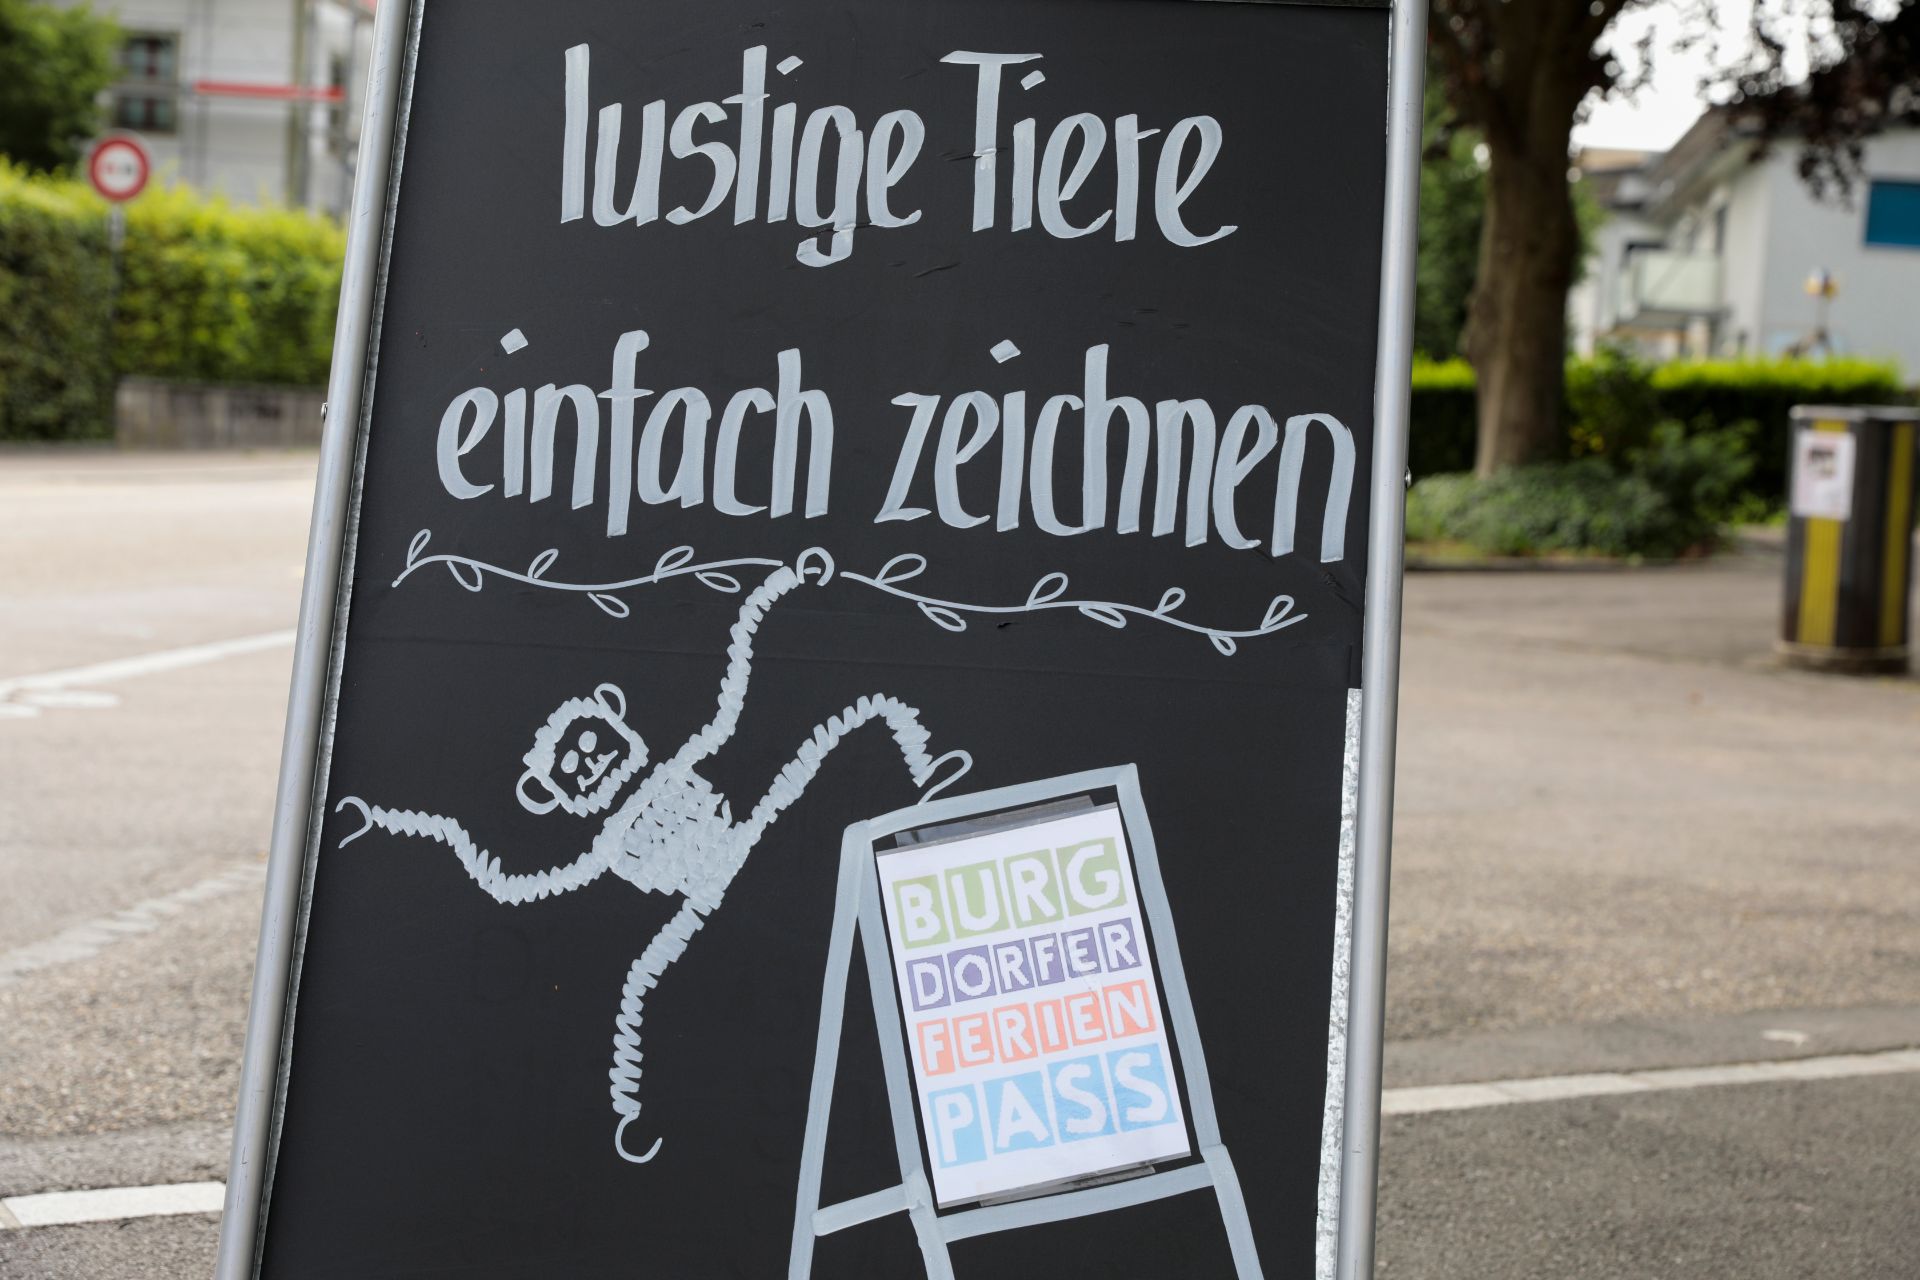 lustige Tiere
einfach zeichnen
BURG
DORFER
FERIEN
PASS